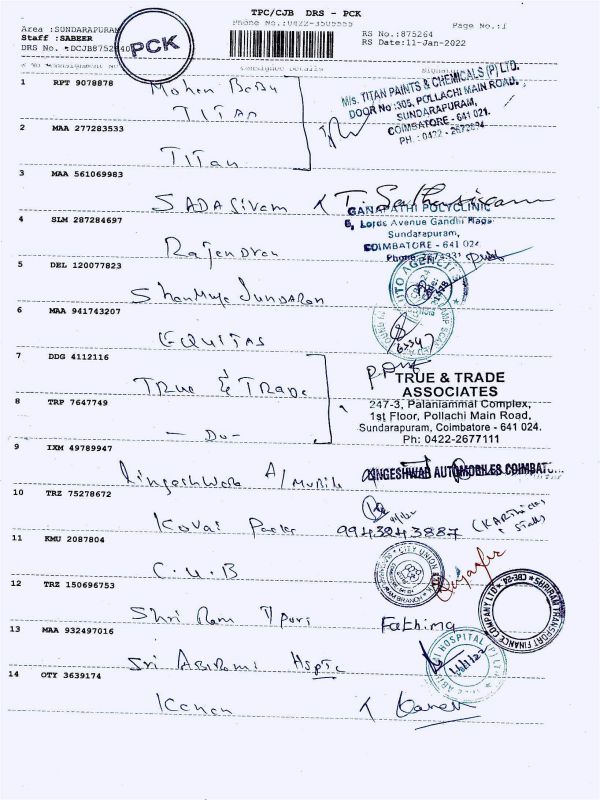 TPC/CJB DRS - PCK
Phone No.:0422-3505555
Page No.:1
Area :SUNDARAPURAM
Staff :SABEER
DRS No. :DCJB875264
PCK
RS No.:875264
RS Date:11-Jan-2022
1 RPT 9078878
Mohan Babu
TITAN
M/s. TITAN PAINTS & CHEMICALS (P) LTD.
DOOR No :305, POLLACHI MAIN ROAD,
SUNDARAPURAM,
COIMBATORE - 641 021.
PH. : 0422 - 2672694
2 MAA 277283533
Titan
3 MAA 561069983
SADASivam
GANAPATHI POLYCLINIC
6, Lords Avenue Gandhi Nagar
Sundarapuram,
COIMBATORE - 641 024
4 SLM 287284697
Rajendran
5 DEL 120077823
6 MAA 941743207
EQUITAS
7 DDG 4112116
TRUE & TRADE
TRUE & TRADE
ASSOCIATES
247-3, Palaniammal Complex,
1st Floor, Pollachi Main Road,
Sundarapuram, Coimbatore - 641 024.
Ph: 0422-2677111
8 TRP 7647749
- Do -
9 IXM 49789947
Lingeshwara A/Mobile
LINGESHWAR AUTOMOBILES COIMBAT...
10 TRZ 75278672
Kovai
9943243887
11 KMU 2087804
C.U.B
CITY UNION
12 TRZ 150696753
Shri Ram
Fathima
SHRIRAM TRANSPORT FINANCE COMPANY LTD
13 MAA 932497016
Sri Abirami
HOSPITAL (P) LTD
14 OTY 3639174
Kanan